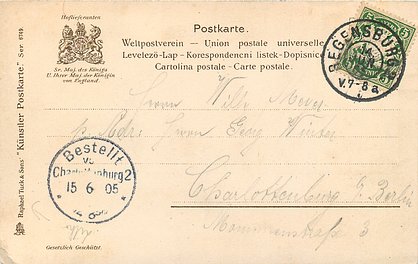 Hoflieferanten
Sr. Maj. des Königs
U. Ihrer Maj. der Königin
von England.
Raphael Tuck & Sons' "Künstler Postkarte" Ser. 6149
Postkarte.
Weltpostverein – Union postale universelle
Levelező-Lap – Korespondencni listek – Dopisnice
Cartolina postale – Carte postale.
REGENSBURG
V. 7-8 a
5
Herrn Willy Meyer
p. Adr. Herrn Georg Winter
Charlottenburg b. Berlin
Mommsenstraße 3
Bestellt
vo
Charlottenburg 2
15 6 05
Gesetzlich Geschützt.